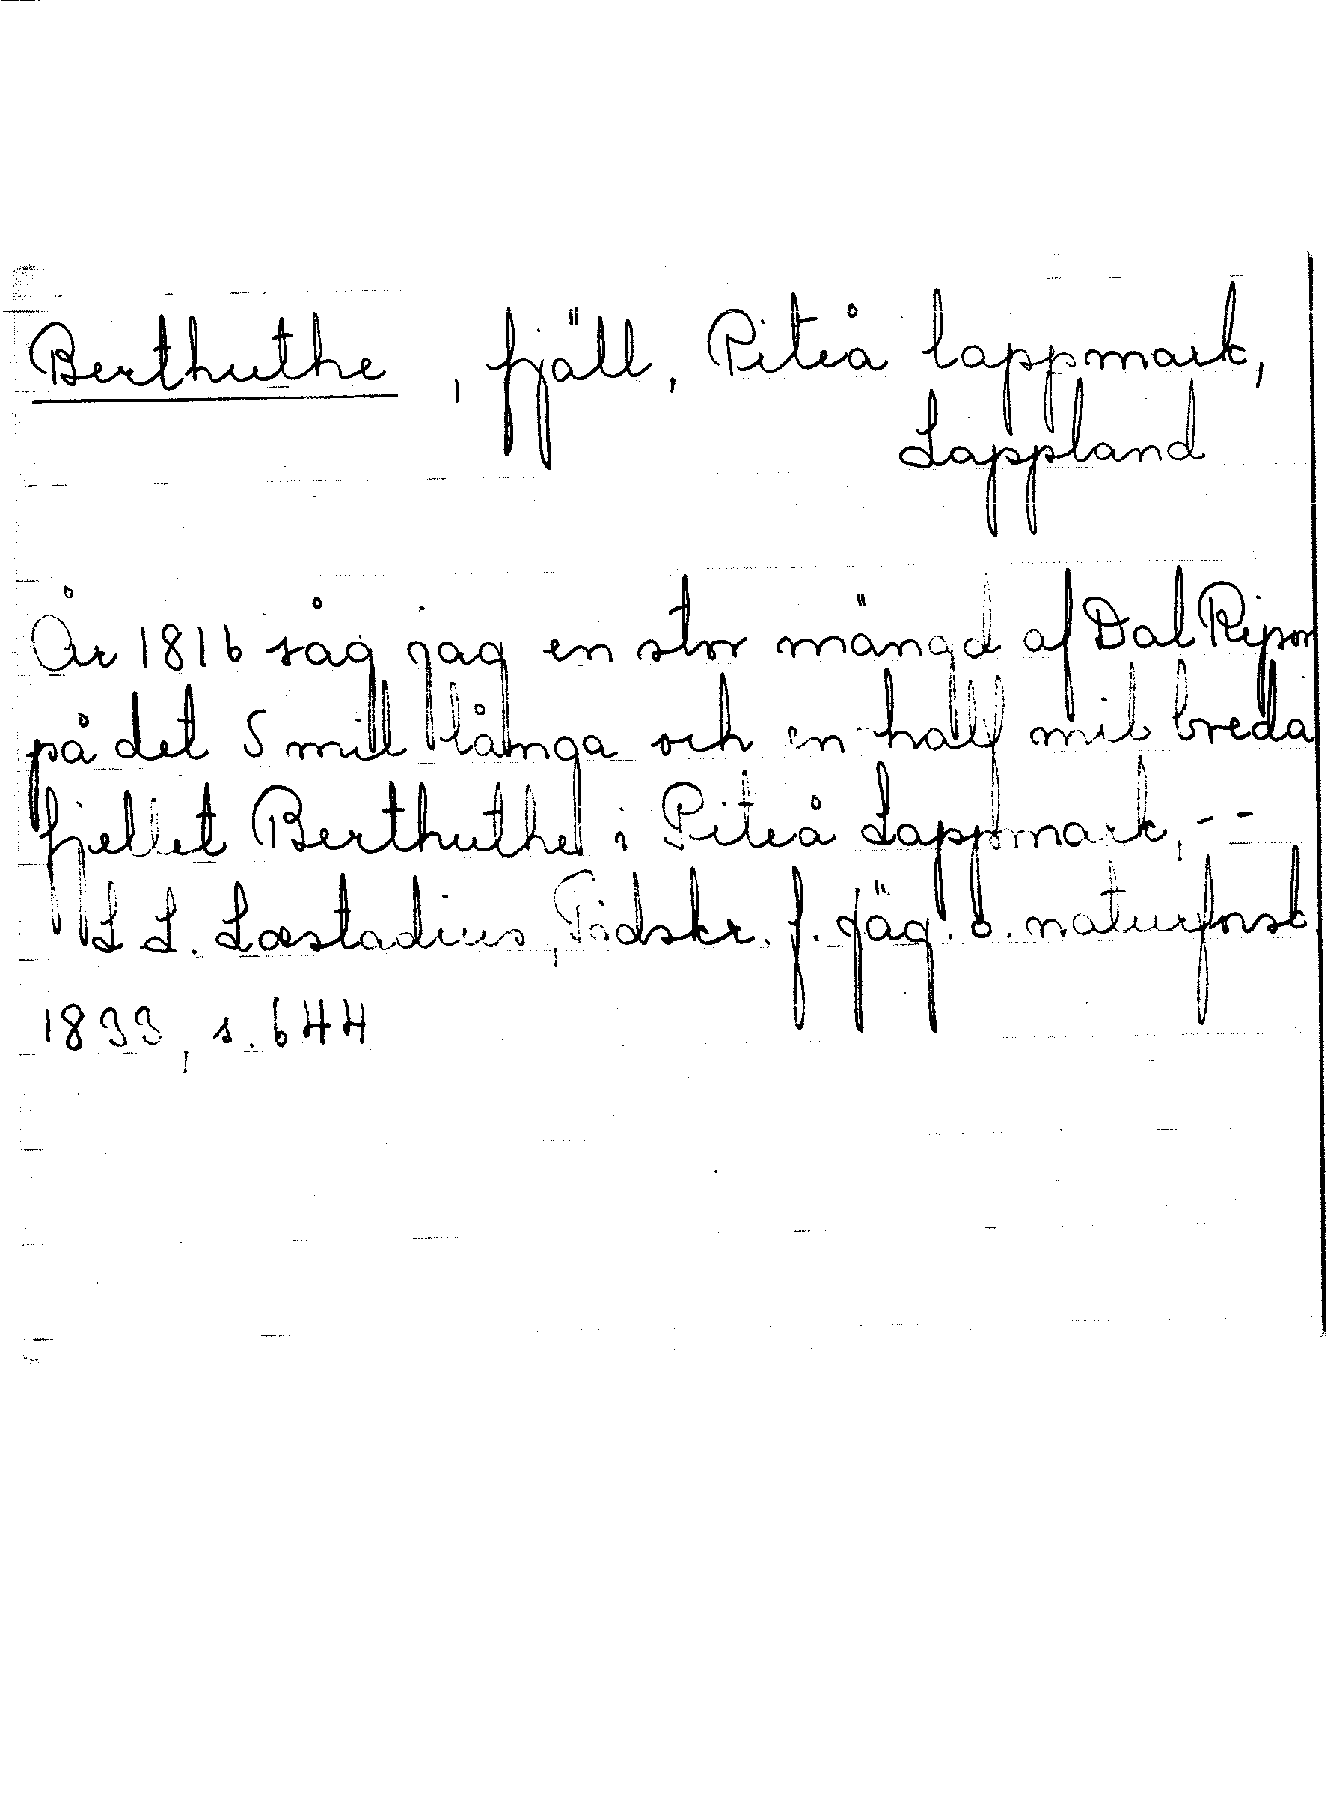 Berthuthe, fjäll, Piteå lappmark,
Lappland
År 1816 såg jag en stor mängd af Dal Ripor
på det 5 mill långa och en half mil breda
fjellet Berthuthe i Piteå Lappmark, --
L L. Læstadius, Tidskr. f. jäg. o. naturforsk.
1833, s. 644